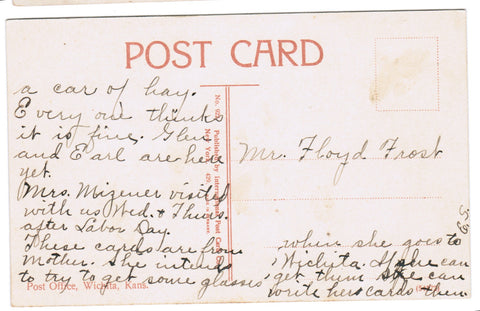 POST CARD
a car of hay.
Every one thinks
it is fine. Glen
and Earl are here
yet.
Mrs. Mizener visited
with us Wed. & Thurs.
after Labor Day.
These cards are from
Mother. She intends
to try to get some glasses
when she goes to
Wichita. If she can
get them she can
write her cards then.
Mr. Floyd Frost
Published by International Post Card Co.
New York.
Post Office, Wichita, Kans.